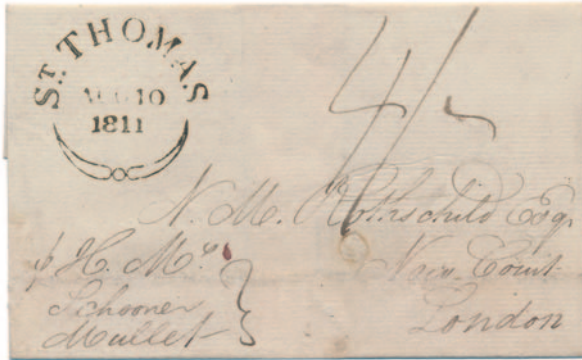 ST. THOMAS
AUG 10
1811
4/-
N. M. Rothschild Esqr
New Court
London
p H. Ms
Schooner
Mullet